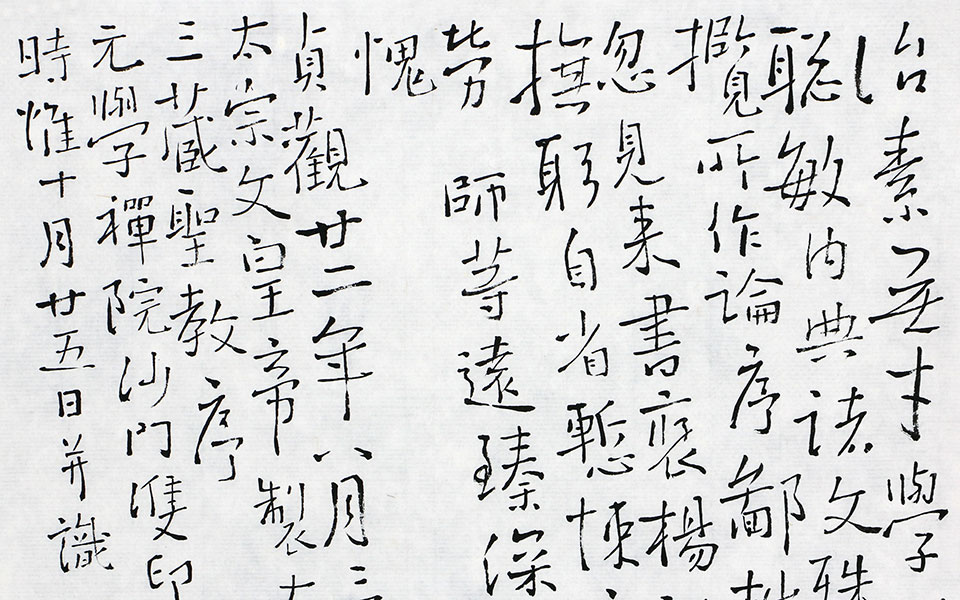 治素無才學
聰敏內典諸文殊
攬所作論序鄙
忽見來書褒楊
撫躬自省慙悚
勞師等遠臻深
愧
貞觀廿二年八月三
太宗文皇帝製
三藏聖教序
元學禪院沙門雙印
時惟十月廿五日并識